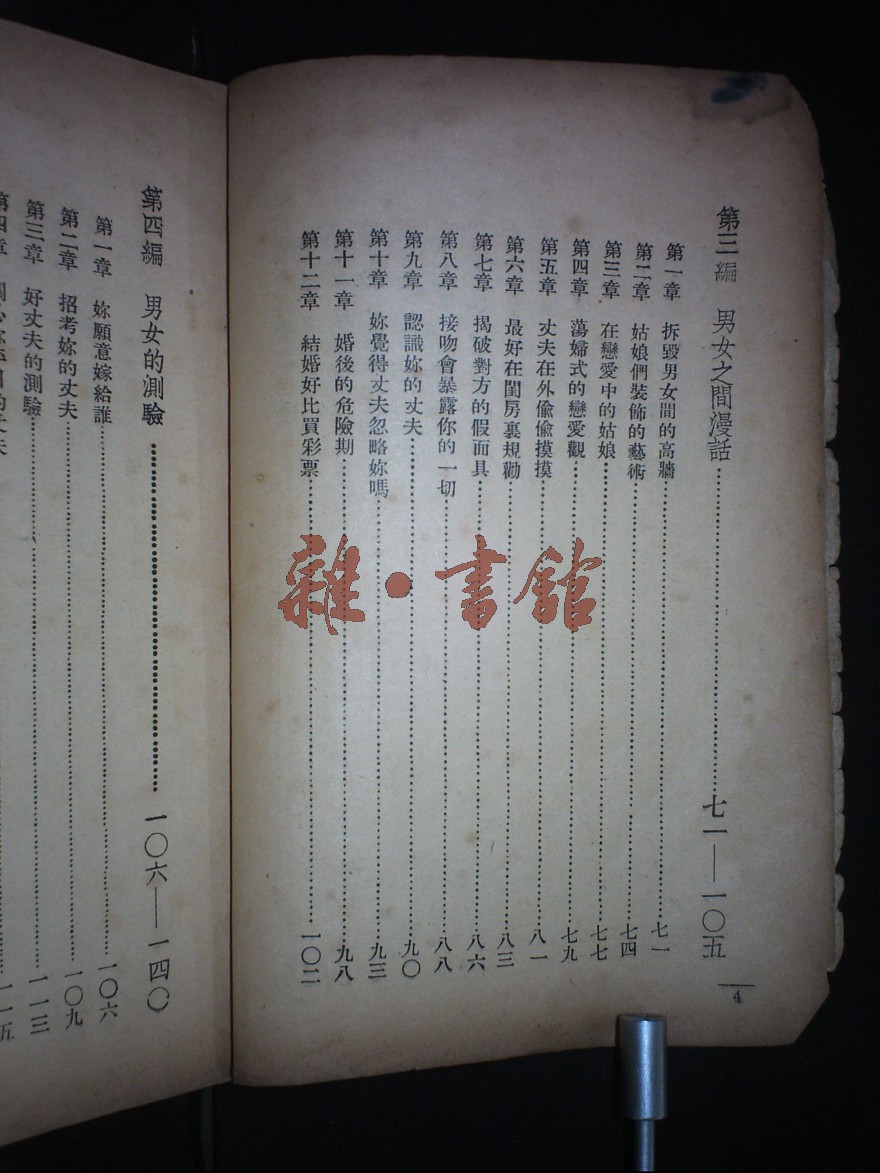 第三編 男女之間漫話……七一—一〇五
第一章 拆毀男女間的高牆……七一
第二章 姑娘們裝飾的藝術……七四
第三章 在戀愛中的姑娘……七七
第四章 蕩婦式的戀愛觀……七九
第五章 丈夫在外偷偷摸摸……八一
第六章 最好在閨房裏規勸……八三
第七章 揭破對方的假面具……八六
第八章 接吻會暴露你的一切……八八
第九章 認識妳的丈夫……九〇
第十章 妳覺得丈夫忽略妳嗎……九三
第十一章 婚後的危險期……九八
第十二章 結婚好比買彩票……一〇二
4
第四編 男女的測驗……一〇六—一四〇
第一章 妳願意嫁給誰……一〇六
第二章 招考妳的丈夫……一〇九
第三章 好丈夫的測驗……一一三
第四章 的丈夫……一一五
雜·書館